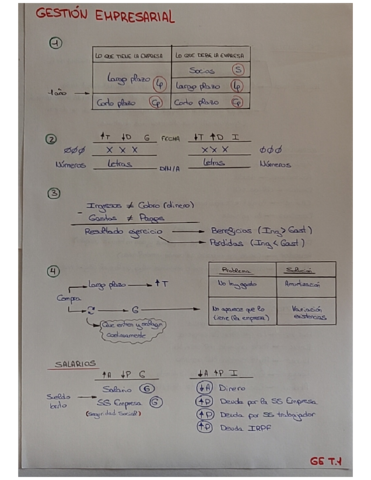 GESTIÓN EMPRESARIAL
1
LO QUE TIENE LA EMPRESA LO QUE DEBE LA EMPRESA
Socios S
Largo plazo Lp Largo plazo Lp
1 año
Corto plazo Cp Corto plazo Cp
2
↑T ↓D G FECHA ↓T ↑D I
ØØØ X X X X X X ØØØ
Números Letras D/M/A Letras Números
3
Ingresos ≠ Cobro (dinero)
- Gastos ≠ Pagos
Resultado ejercicio → Beneficios (Ing > Gast)
→ Pérdidas (Ing < Gast)
4
Problema Solución
Largo plazo → ↑T No he gastado Amortización
Compra
→ G No aparece que lo Variación
tiene (la empresa) existencias
Que entra y
continuamente
SALARIOS
↑A ↓P G ↓A ↑P I
Salario G ↓A Dinero
Sueldo SS Empresa G ↑P Deuda por la SS Empresa
bruto (Seguridad Social) ↑P Deuda por SS trabajador
↑P Deuda IRPF
GE T.1